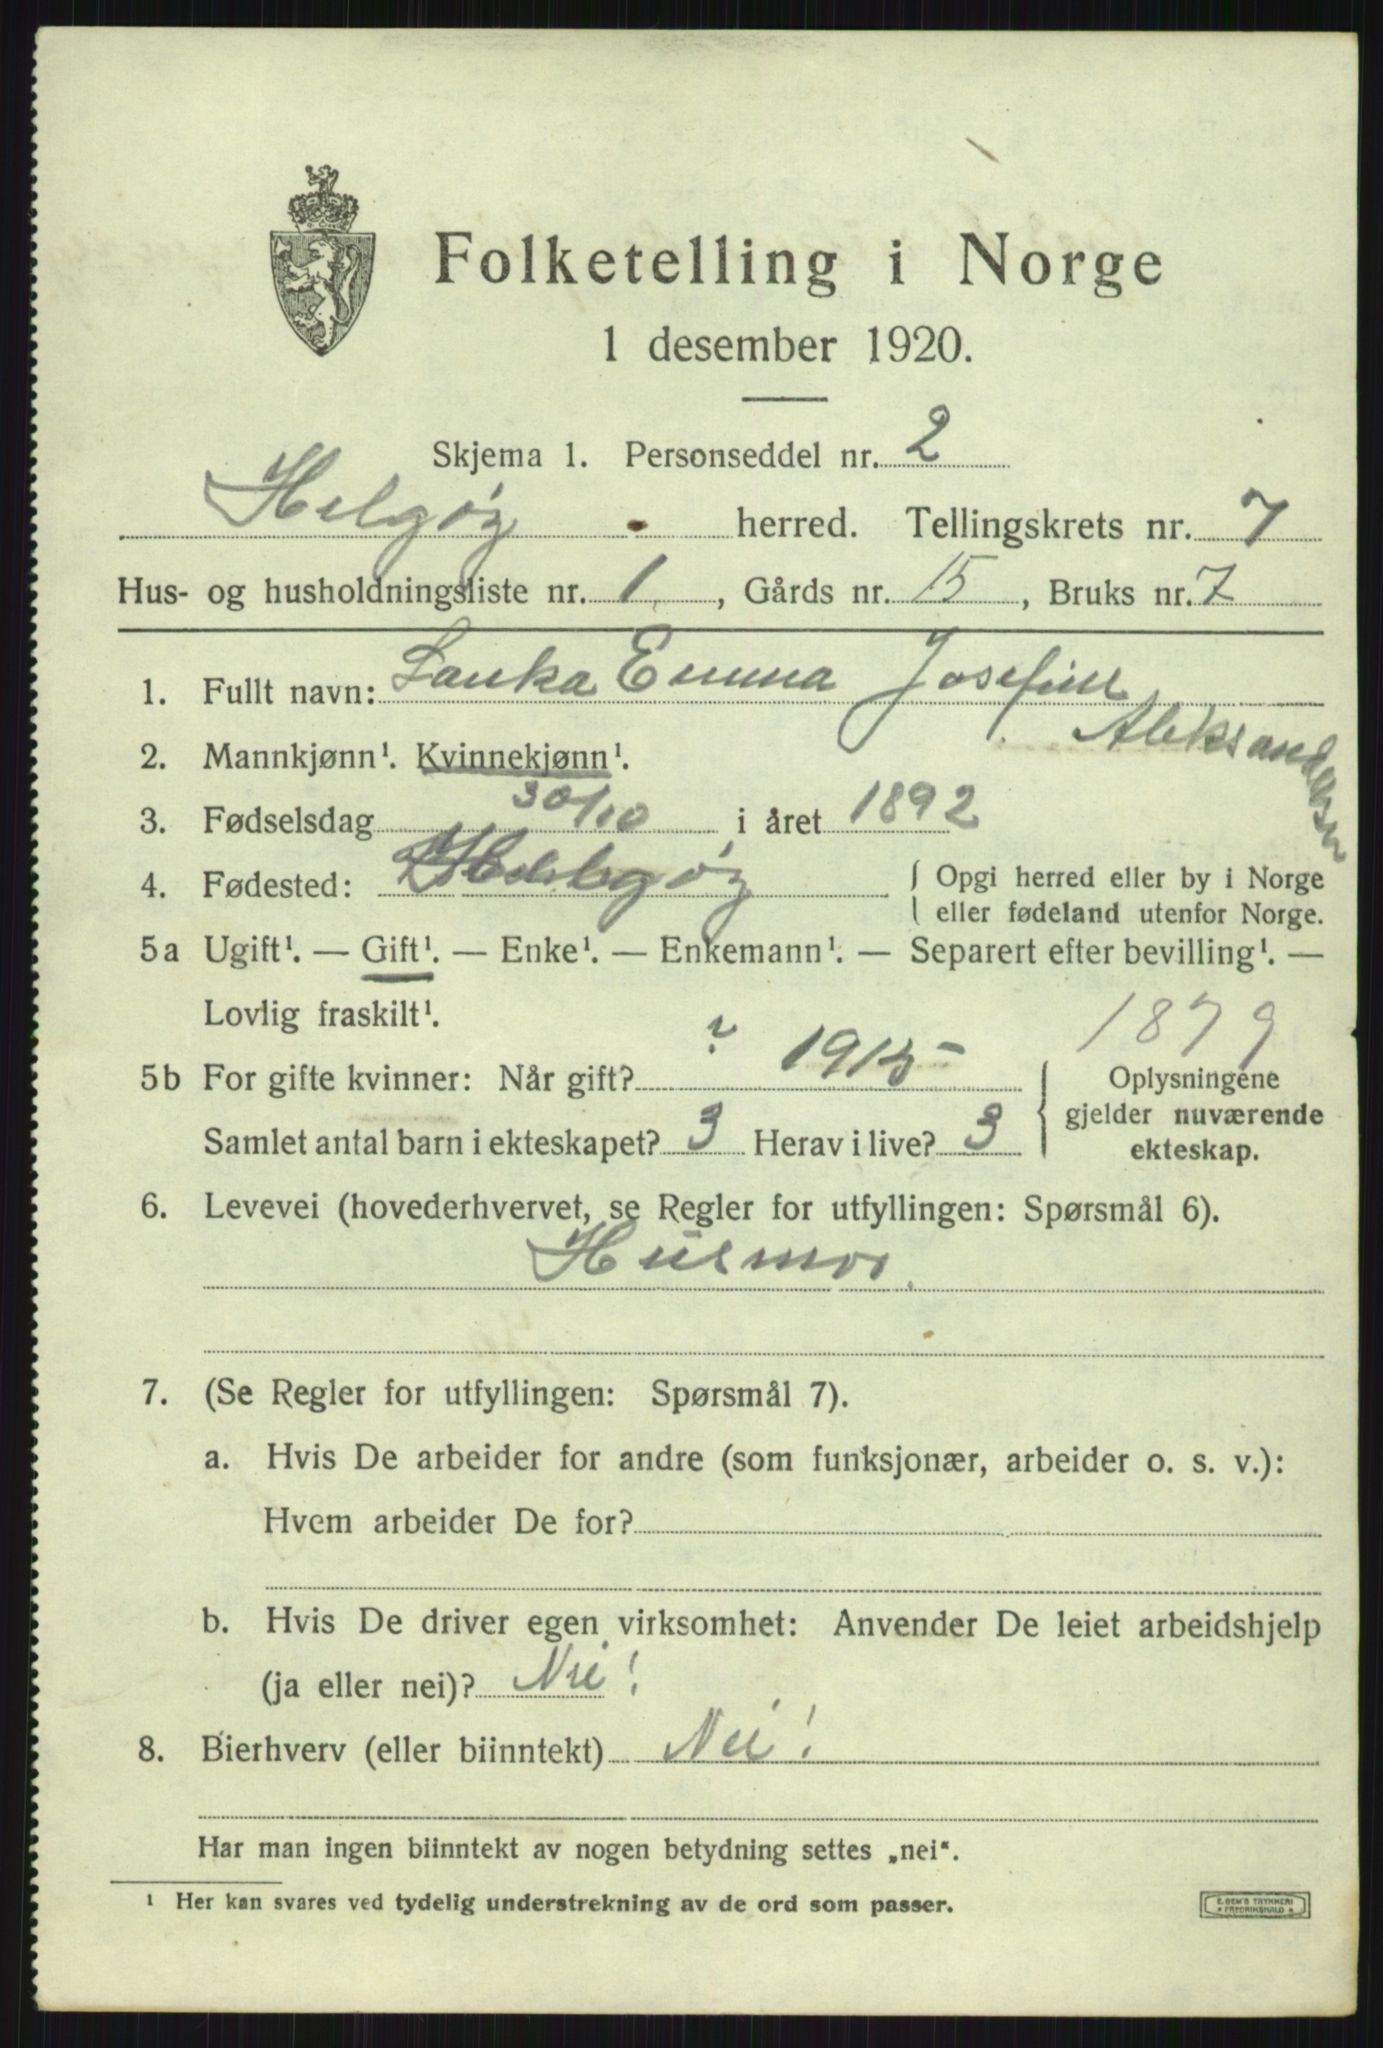 Folketelling i Norge
1 desember 1920.
Skjema 1. Personseddel nr. 2
Helgøy herred. Tellingskrets nr. 7
Hus- og husholdningsliste nr. 1, Gårds nr. 15, Bruks nr. 7
1. Fullt navn: Lanka Emma Josefine
Aleksandersen
2. Mannkjønn¹. Kvinnekjønn¹.
3. Fødselsdag 30/10 i året 1892
4. Fødested: Helgøy { Opgi herred eller by i Norge
eller fødeland utenfor Norge.
5a Ugift¹. — Gift¹. — Enke¹. — Enkemann¹. — Separert efter bevilling¹. —
Lovlig fraskilt¹.
1879
5b For gifte kvinner: Når gift? ? 1915 -
Samlet antal barn i ekteskapet? 3 Herav i live? 3
Oplysningene
gjelder nuværende
ekteskap.
6. Levevei (hovederhvervet, se Regler for utfyllingen: Spørsmål 6).
Husmor.
7. (Se Regler for utfyllingen: Spørsmål 7).
a. Hvis De arbeider for andre (som funksjonær, arbeider o. s. v.):
Hvem arbeider De for?
b. Hvis De driver egen virksomhet: Anvender De leiet arbeidshjelp
(ja eller nei)? Nei!
8. Bierhverv (eller biinntekt) Nei!
Har man ingen biinntekt av nogen betydning settes „nei".
¹ Her kan svares ved tydelig understrekning av de ord som passer.
E. SEM'S TRYKKERI
* FREDRIKSHALD *